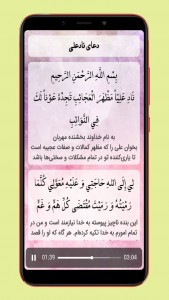 دعای نادعلی
بِسْمِ اللَّهِ الرَّحْمَنِ الرَّحِيمِ
نَادِ عَلِيّاً مَظْهَرَ الْعَجَائِبِ تَجِدْهُ عَوْناً لَكَ
فِي النَّوَائِبِ
به نام خداوند بخشنده مهربان
بخوان علی را که مظهر کمالات و صفات عجیبه است
تا یاری‌کننده تو در تمام مشکلات و سختی‌ها باشد
لِي إِلَى اللهِ حَاجَتِي وَ عَلَيْهِ مُعَوَّلِي كُلَّمَا
رَمَيْتُهُ وَ رَمَيْتَ مُقْتَضَى كُلِّ هَمٍّ وَ غَمٍّ
این بنده ناچیز پیوسته به خدا نیازمند است و من در
تمام امورم به خدا تکیه کرده‌ام. هر گاه که او را قصد
01:39
03:04